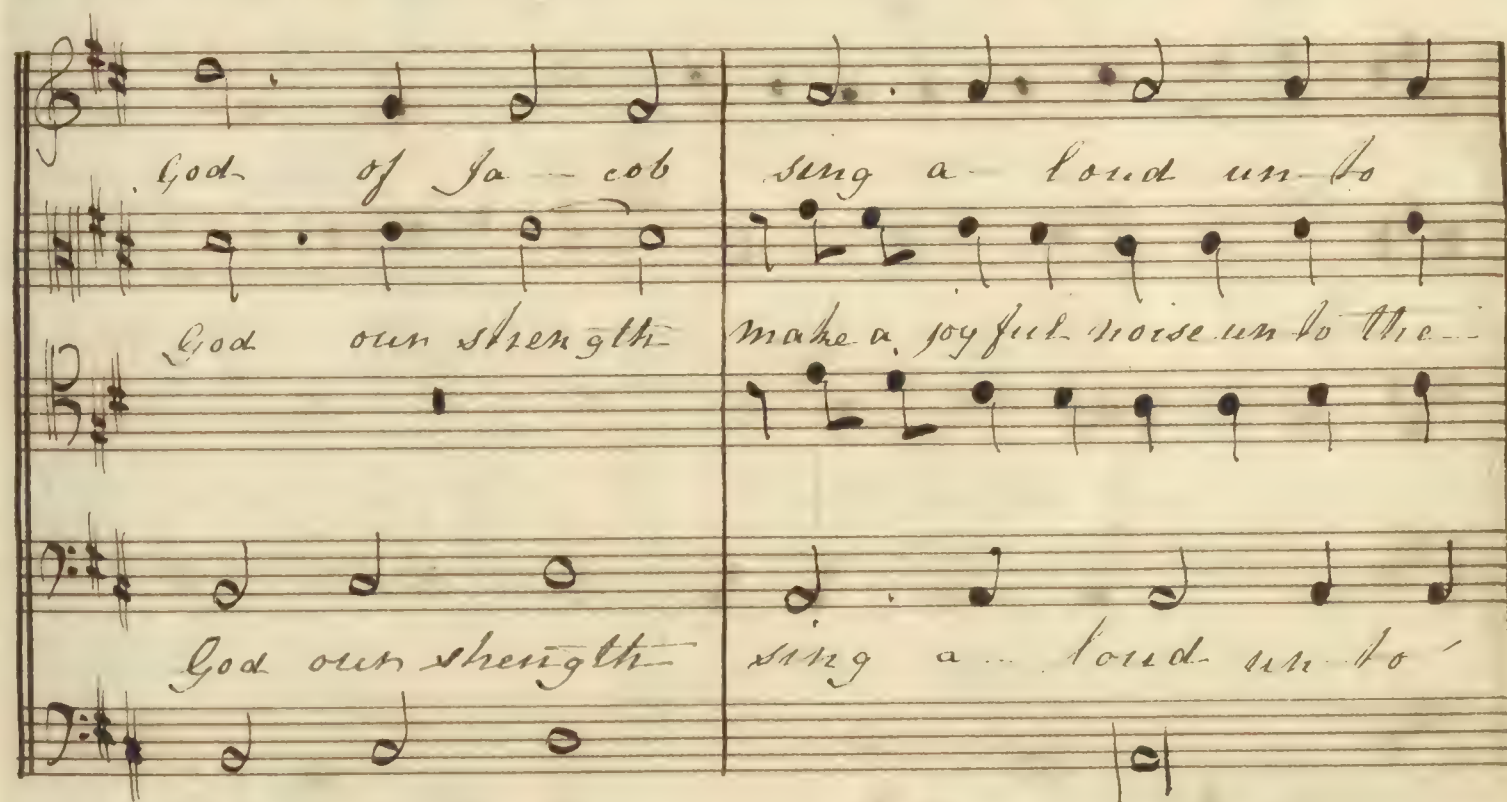 God of Ja - cob sing a - loud un - to
God our strength make a joyful noise un to the
God our strength sing a - loud un - to